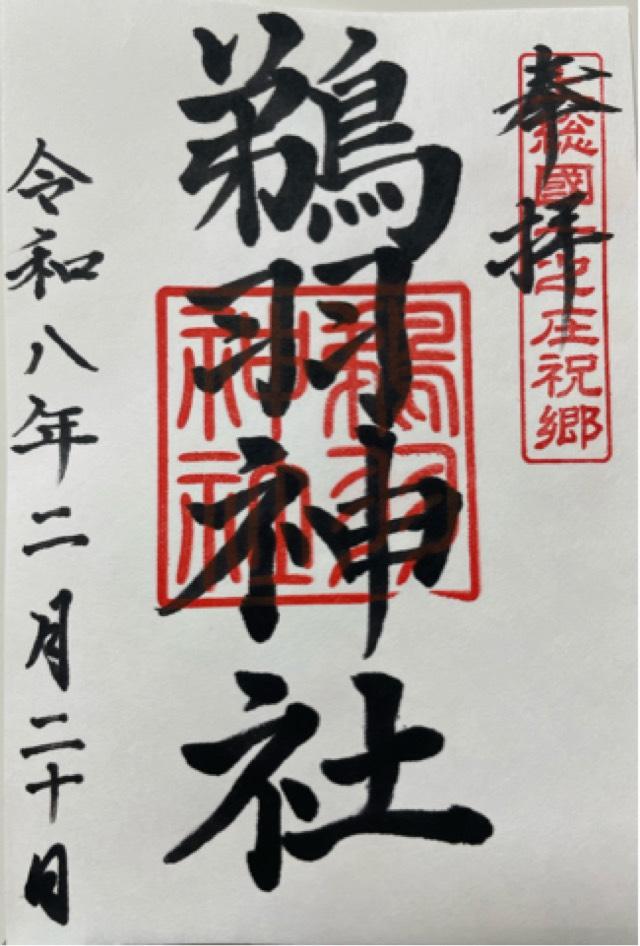 奉拝
総國一之庄祝郷
鵜羽神社
鵜羽
神社
令和八年二月二十日